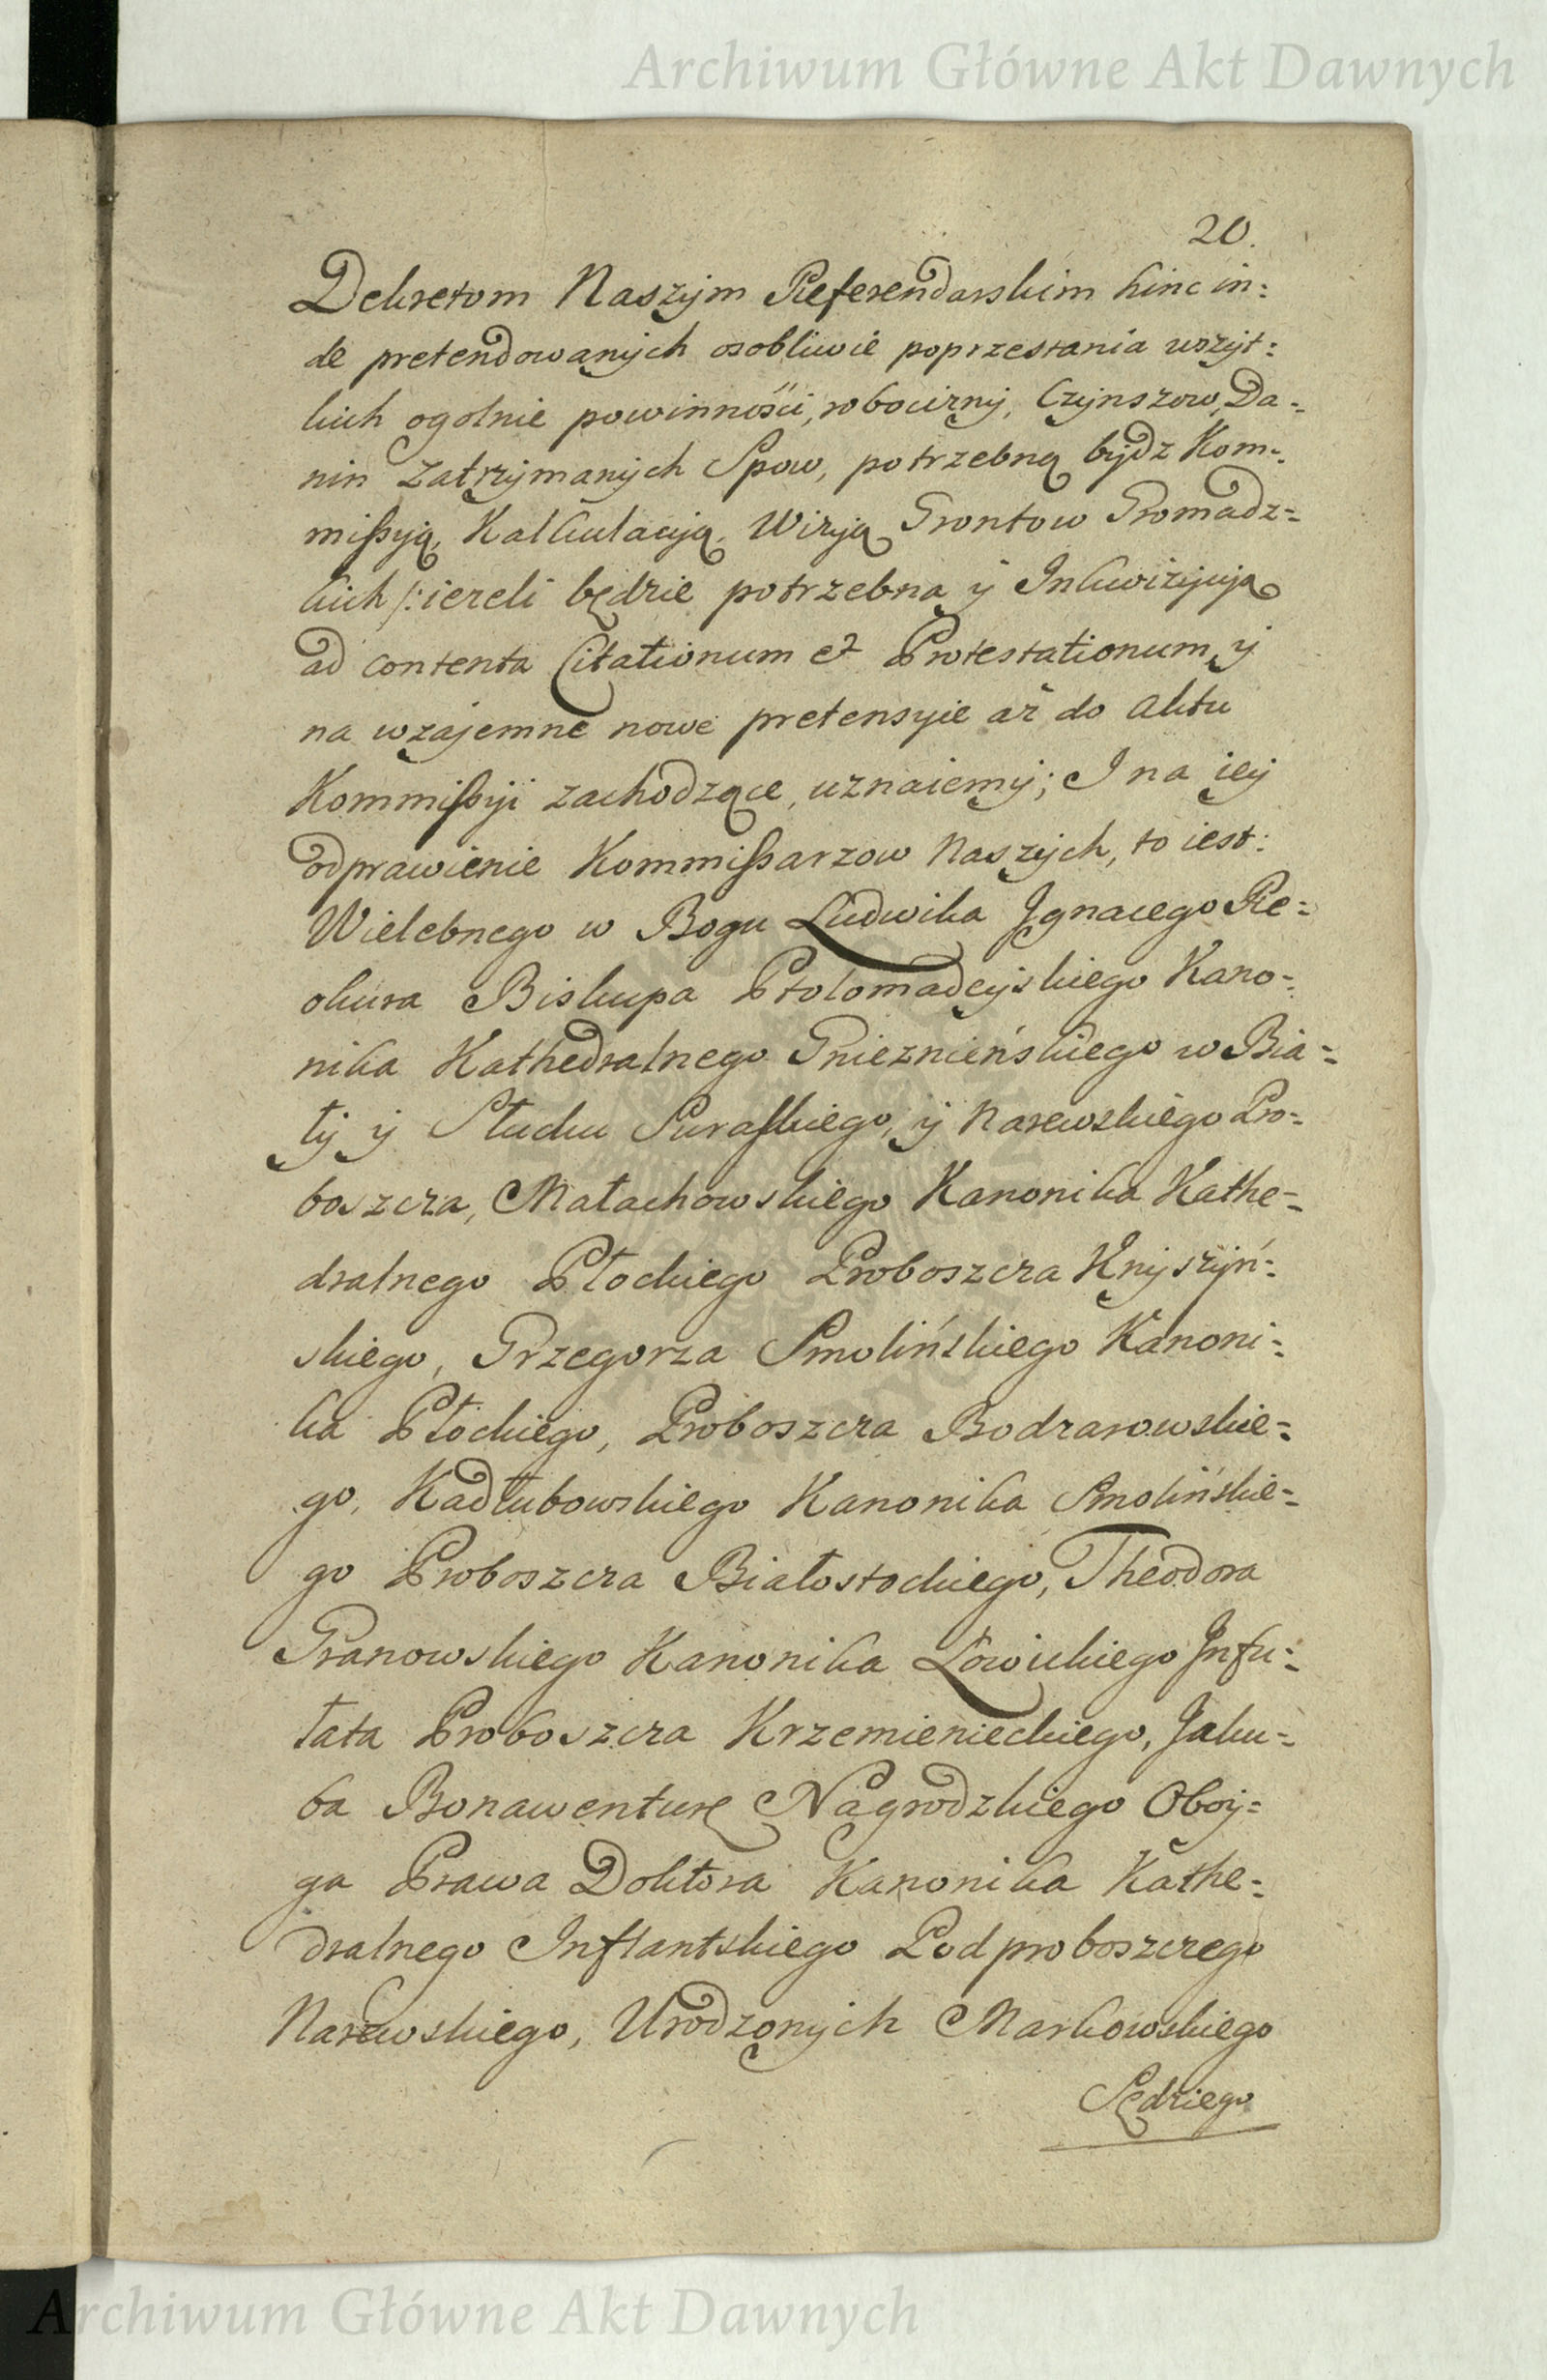 Archiwum Główne Akt Dawnych
20.
Dekretom Naszym Referendarskim hinc in:
de pretendowanych osobliwie poprzestania wszyt:
kich ogolnie powinności, robocizny, Czynszow, Da-
nin zatrzymanych Spow, potrzebną bydz Kom-
missyą, Kalkulacyą, Wizyą Grontow Gromadz-
kich /: ieżeli będzie potrzebna y Inkwizycyją
ad contenta Citationum et Protestationum, y
na wzajemne nowe pretensyie aż do Aktu
Kommissyi zachodzące, uznaiemy; I na iey
odprawienie Kommissarzow Naszych, to iest:
Wielebnego w Bogu Ludwika Ignacego Rie=
okura Biskupa Ptolomadeyskiego Kano=
nika Kathedralnego Gnieznieńskiego w Bia=
ły y Słucku Suraskiego, y Narewskiego Pro=
boszcza, Małachowskiego Kanonika Kathe=
dralnego Płockiego Proboszcza Knyszyń=
skiego, Grzegorza Smolińskiego Kanoni=
ka Płockiego, Proboszcza Bodzanowskie=
go, Kadłubowskiego Kanonika Smolińskie=
go Proboszcza Białostockiego, Theodora
Granowskiego Kanonika Łowickiego Infu=
łata Proboszcza Krzemienieckiego, Jaku=
ba Bonawenturę Nagrodzkiego Oboy=
ga Prawa Doktora Kanonika Kathe=
dralnego Inflantskiego Podproboszczego
Narewskiego, Urodzonych Markowskiego
Sędziego
Archiwum Główne Akt Dawnych